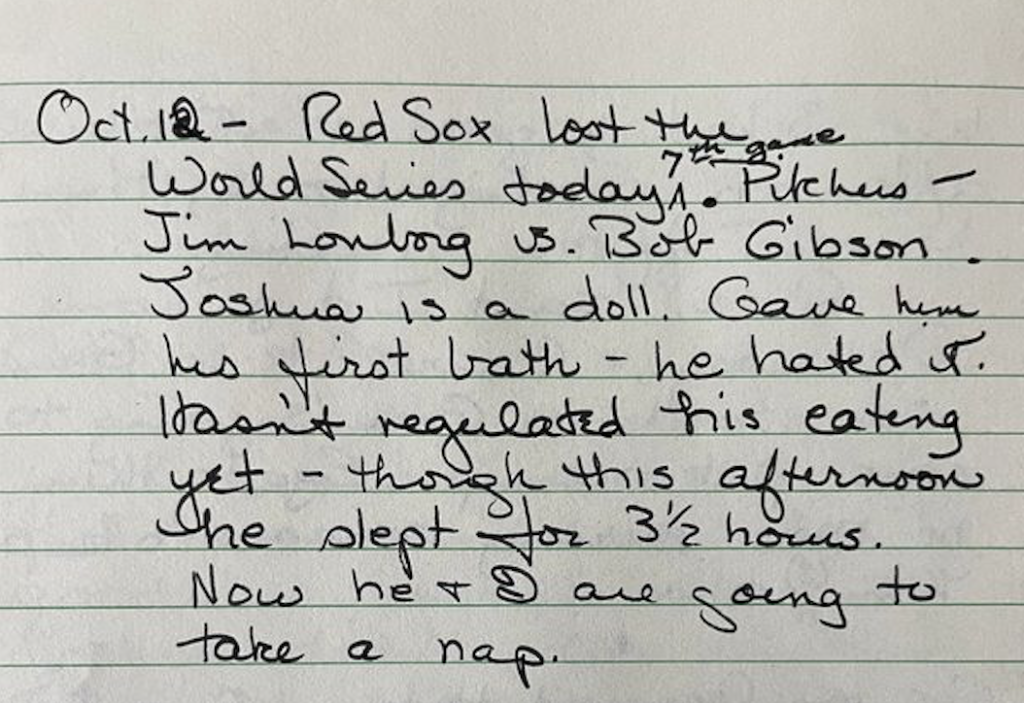 Oct. 12 - Red Sox lost the
World Series today 7th game. Pitchers -
Jim Lonborg vs. Bob Gibson.
Joshua is a doll. Gave him
his first bath - he hated it.
Hasn't regulated his eating
yet - though this afternoon
he slept for 3 1/2 hours.
Now he + I are going to
take a nap.